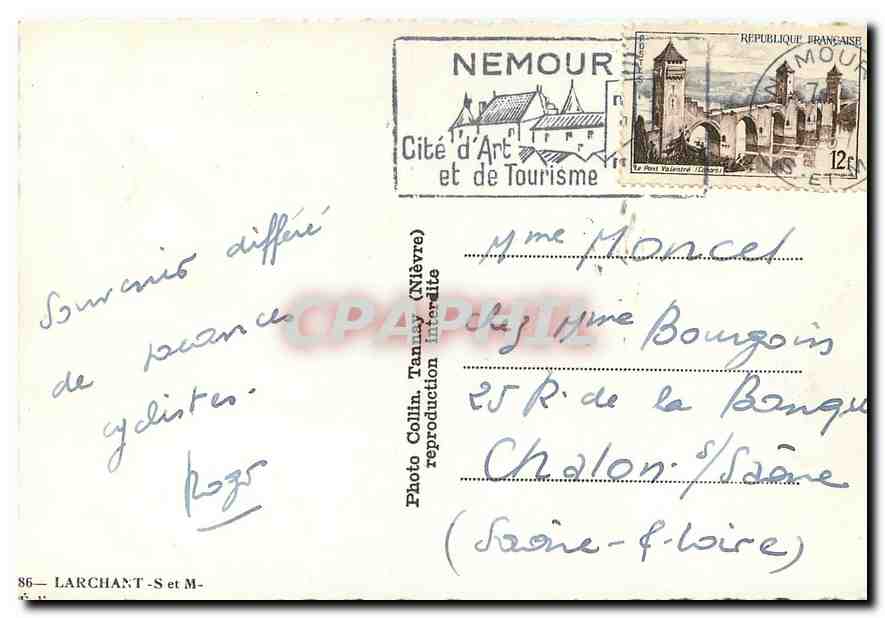 NEMOUR
Cité d'Art
et de Tourisme
REPUBLIQUE FRANÇAISE
POSTES
12F
Le Pont Valentré (Cahors)
NEMOUR
7
S. ET M
Souvenir différé
de vacances
cyclistes.
Roger
Photo Collin, Tannay (Nièvre)
reproduction interdite
Mme Moncel
chez Mme Bourgois
25 R. de la Banque
Chalon s/Saône
(Saône-&-Loire)
CPAPHIL
86— LARCHANT -S et M-